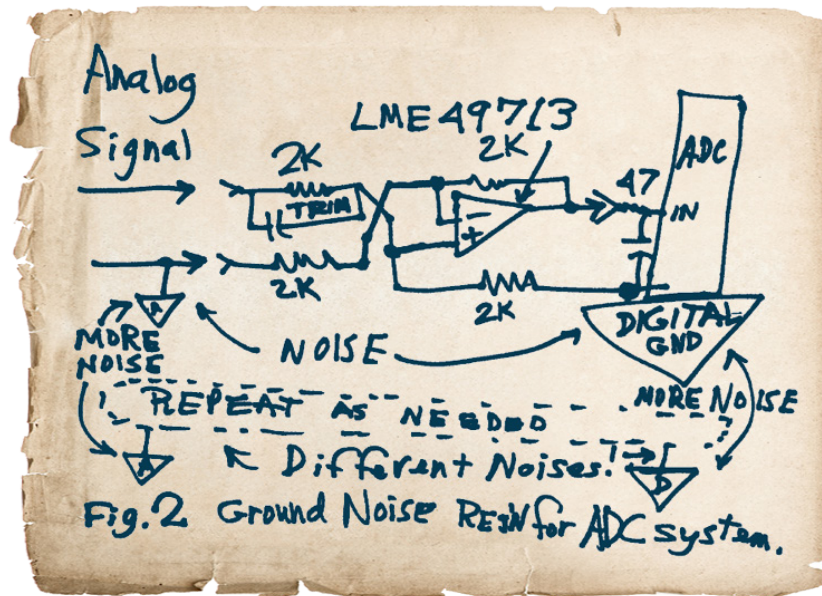 Analog
Signal
LME 49713
2K
2K
ADC
TRIM
47
- IN
+
2K
2K
A
DIGITAL
GND
MORE
NOISE
NOISE
MORE NOISE
REPEAT AS NEEDED
A
Different Noises!
D
Fig.2 Ground Noise REJ'N for ADC system.